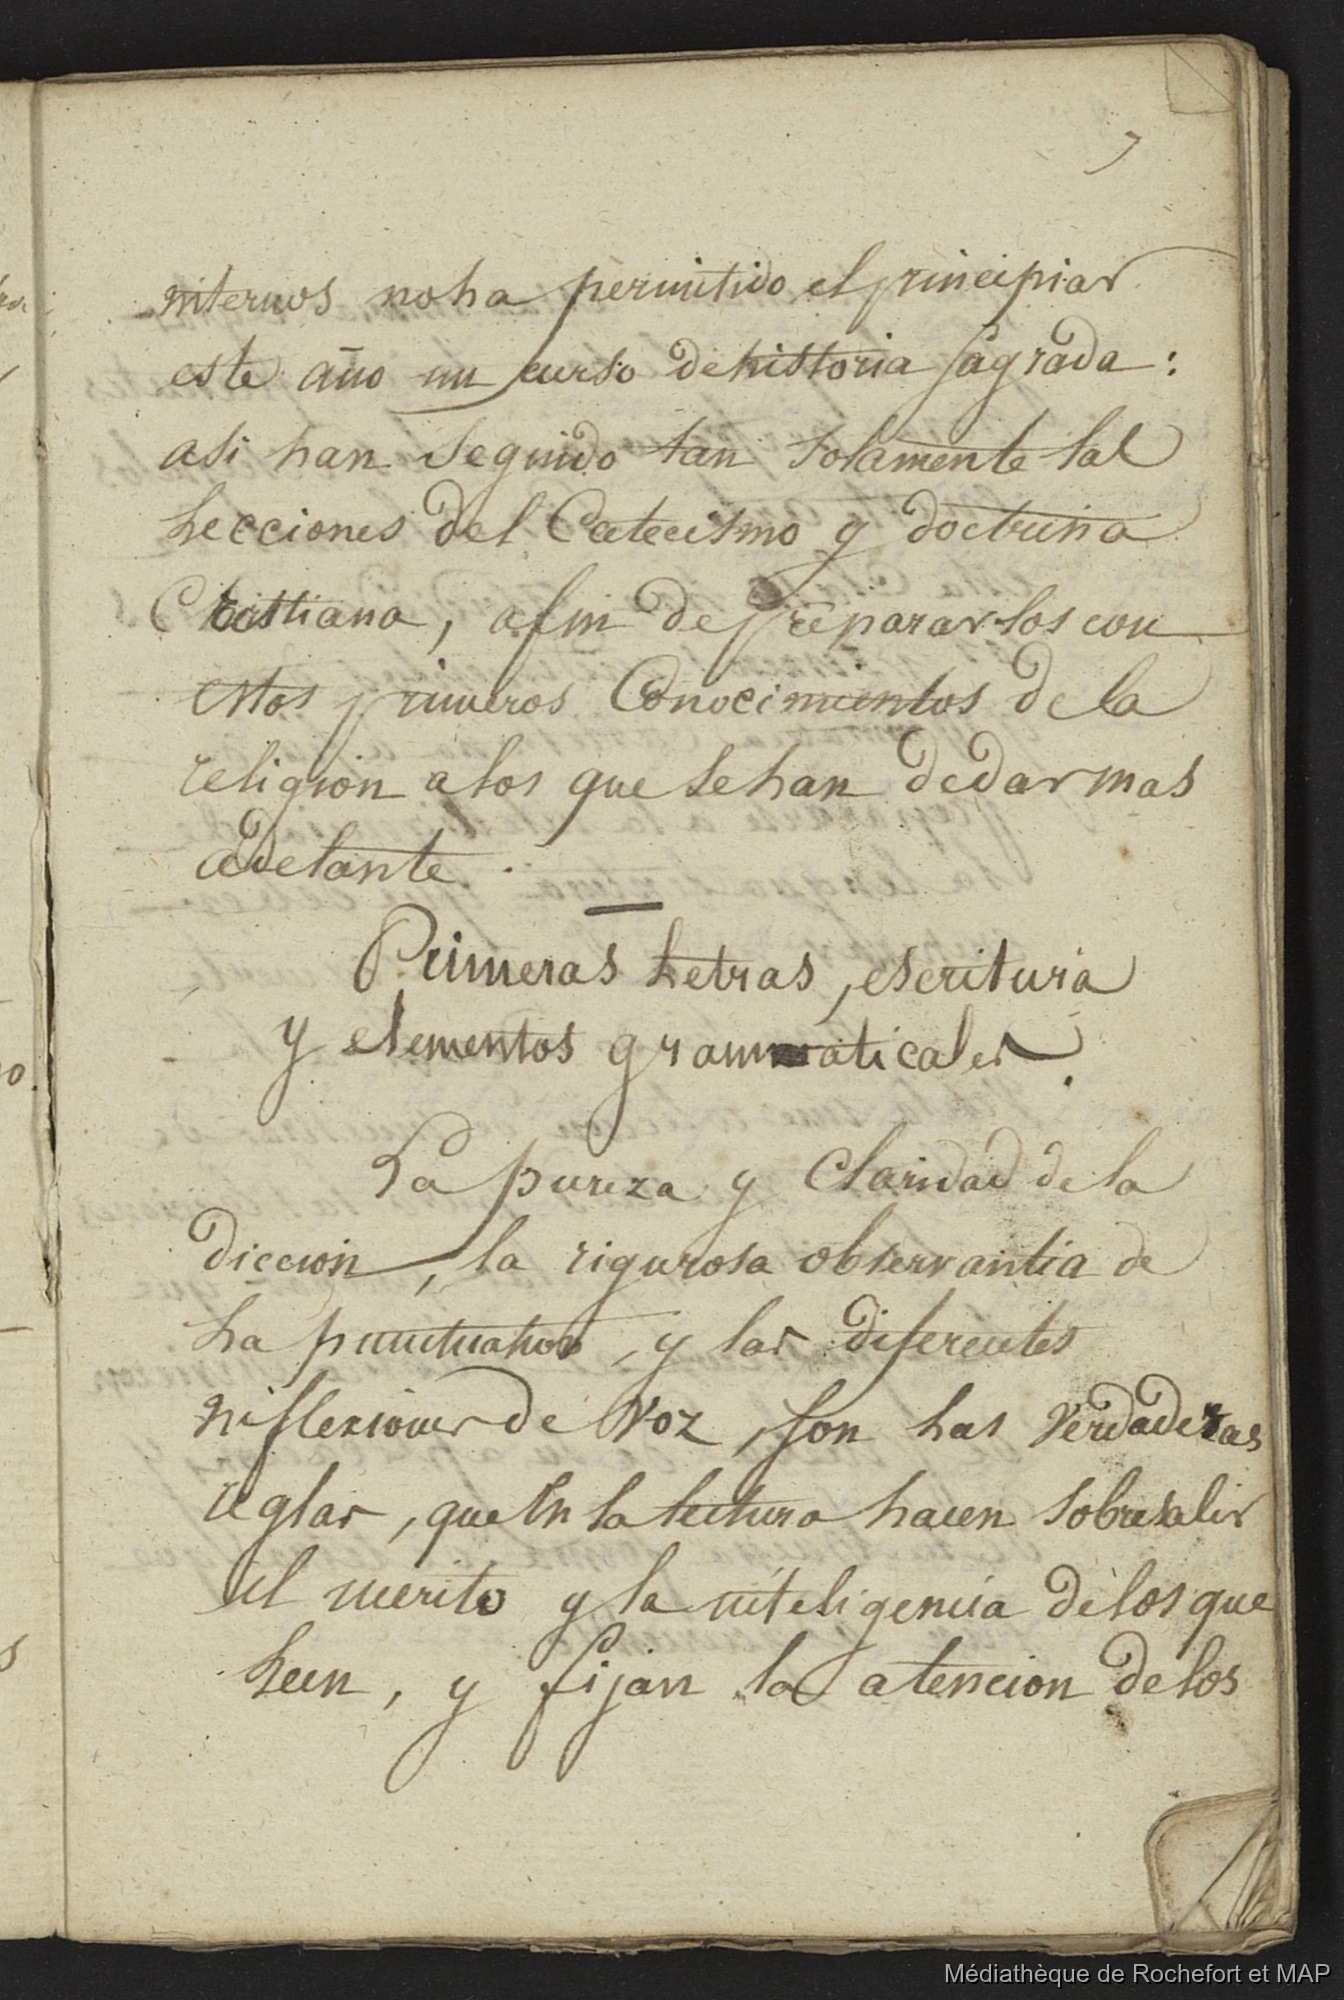 7
internos no ha permitido el principiar
este año un curso de historia sagrada:
asi han seguido tan solamente las
Lecciones del Catecismo y doctrina
Cristiana, afin de prepararlos con
estos primeros Conocimientos de la
religion a los que se han de dar mas
adelante.
Primeras Letras, escritura
y elementos grammaticales.
La pureza y Claridad de la
diccion, la rigurosa observantia de
La puntuation, y las diferentes
inflexiones de Voz, son las Verdaderas
reglas, que en la lectura hacen sobresalir
el merito y la inteligencia de los que
Leen, y fijan la atencion de los
Médiathèque de Rochefort et MAP